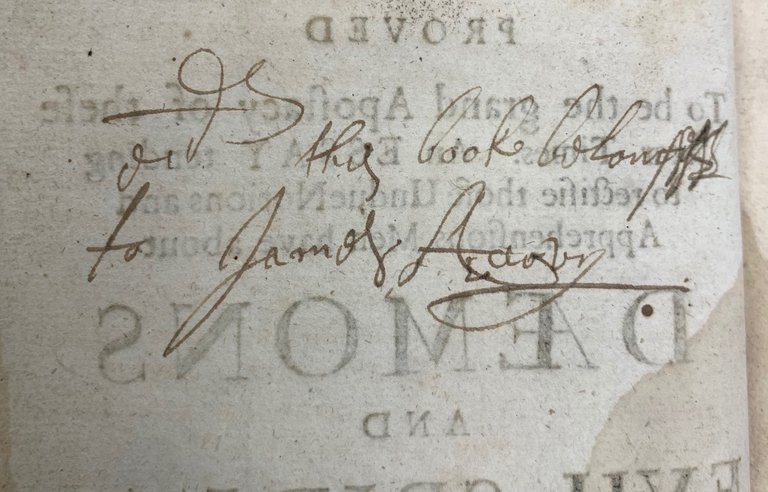 PROVED
To be the grand Apoſtacy of theſe
this book belongs
Times. An ESSAY tending
to rectifie the Undue Notions and
to James
Apprehenſions Men have about
DÆMONS
AND
EVIL